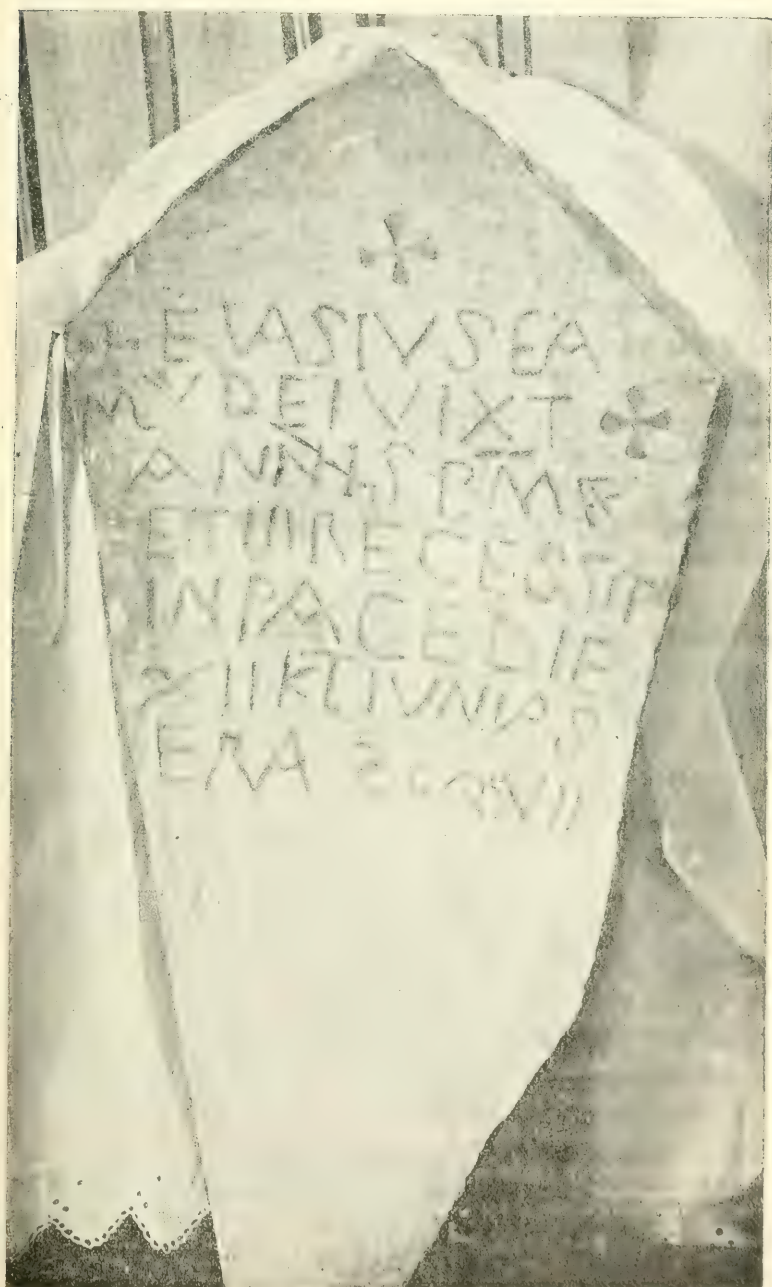 ELASIVS FA
MV DEI VIXT
ANNIS P̅M
ET VII RECESSIT
IN PACE DIE
XII KL IVNIAS
ERA